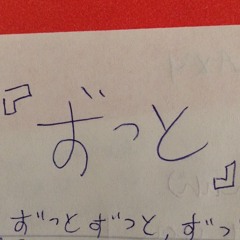 『ずっと』
ずっとずっと、ずっ